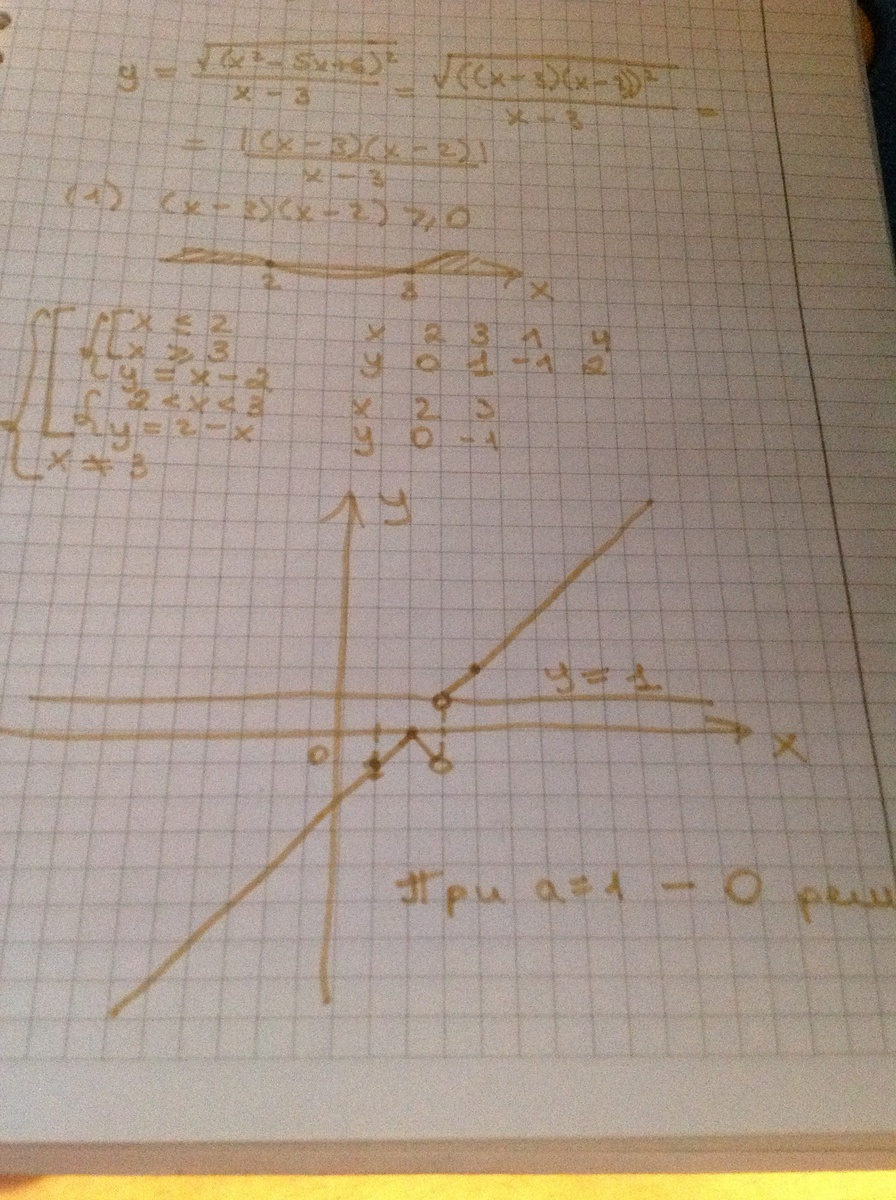 y = √(x² - 5x+6)² / x - 3 = √((x-3)(x-2))² / x - 3 =
= |(x-3)(x-2)| / x - 3
(1) (x-3)(x-2) ≥ 0
2 3 x
x ≤ 2
x ≥ 3
y = x - 2
2 < x < 3
y = 2 - x
x ≠ 3
x 2 3 1 4
y 0 1 -1 2
x 2 3
y 0 -1
y
y = 1
0 x
При a = 1 - 0 реш